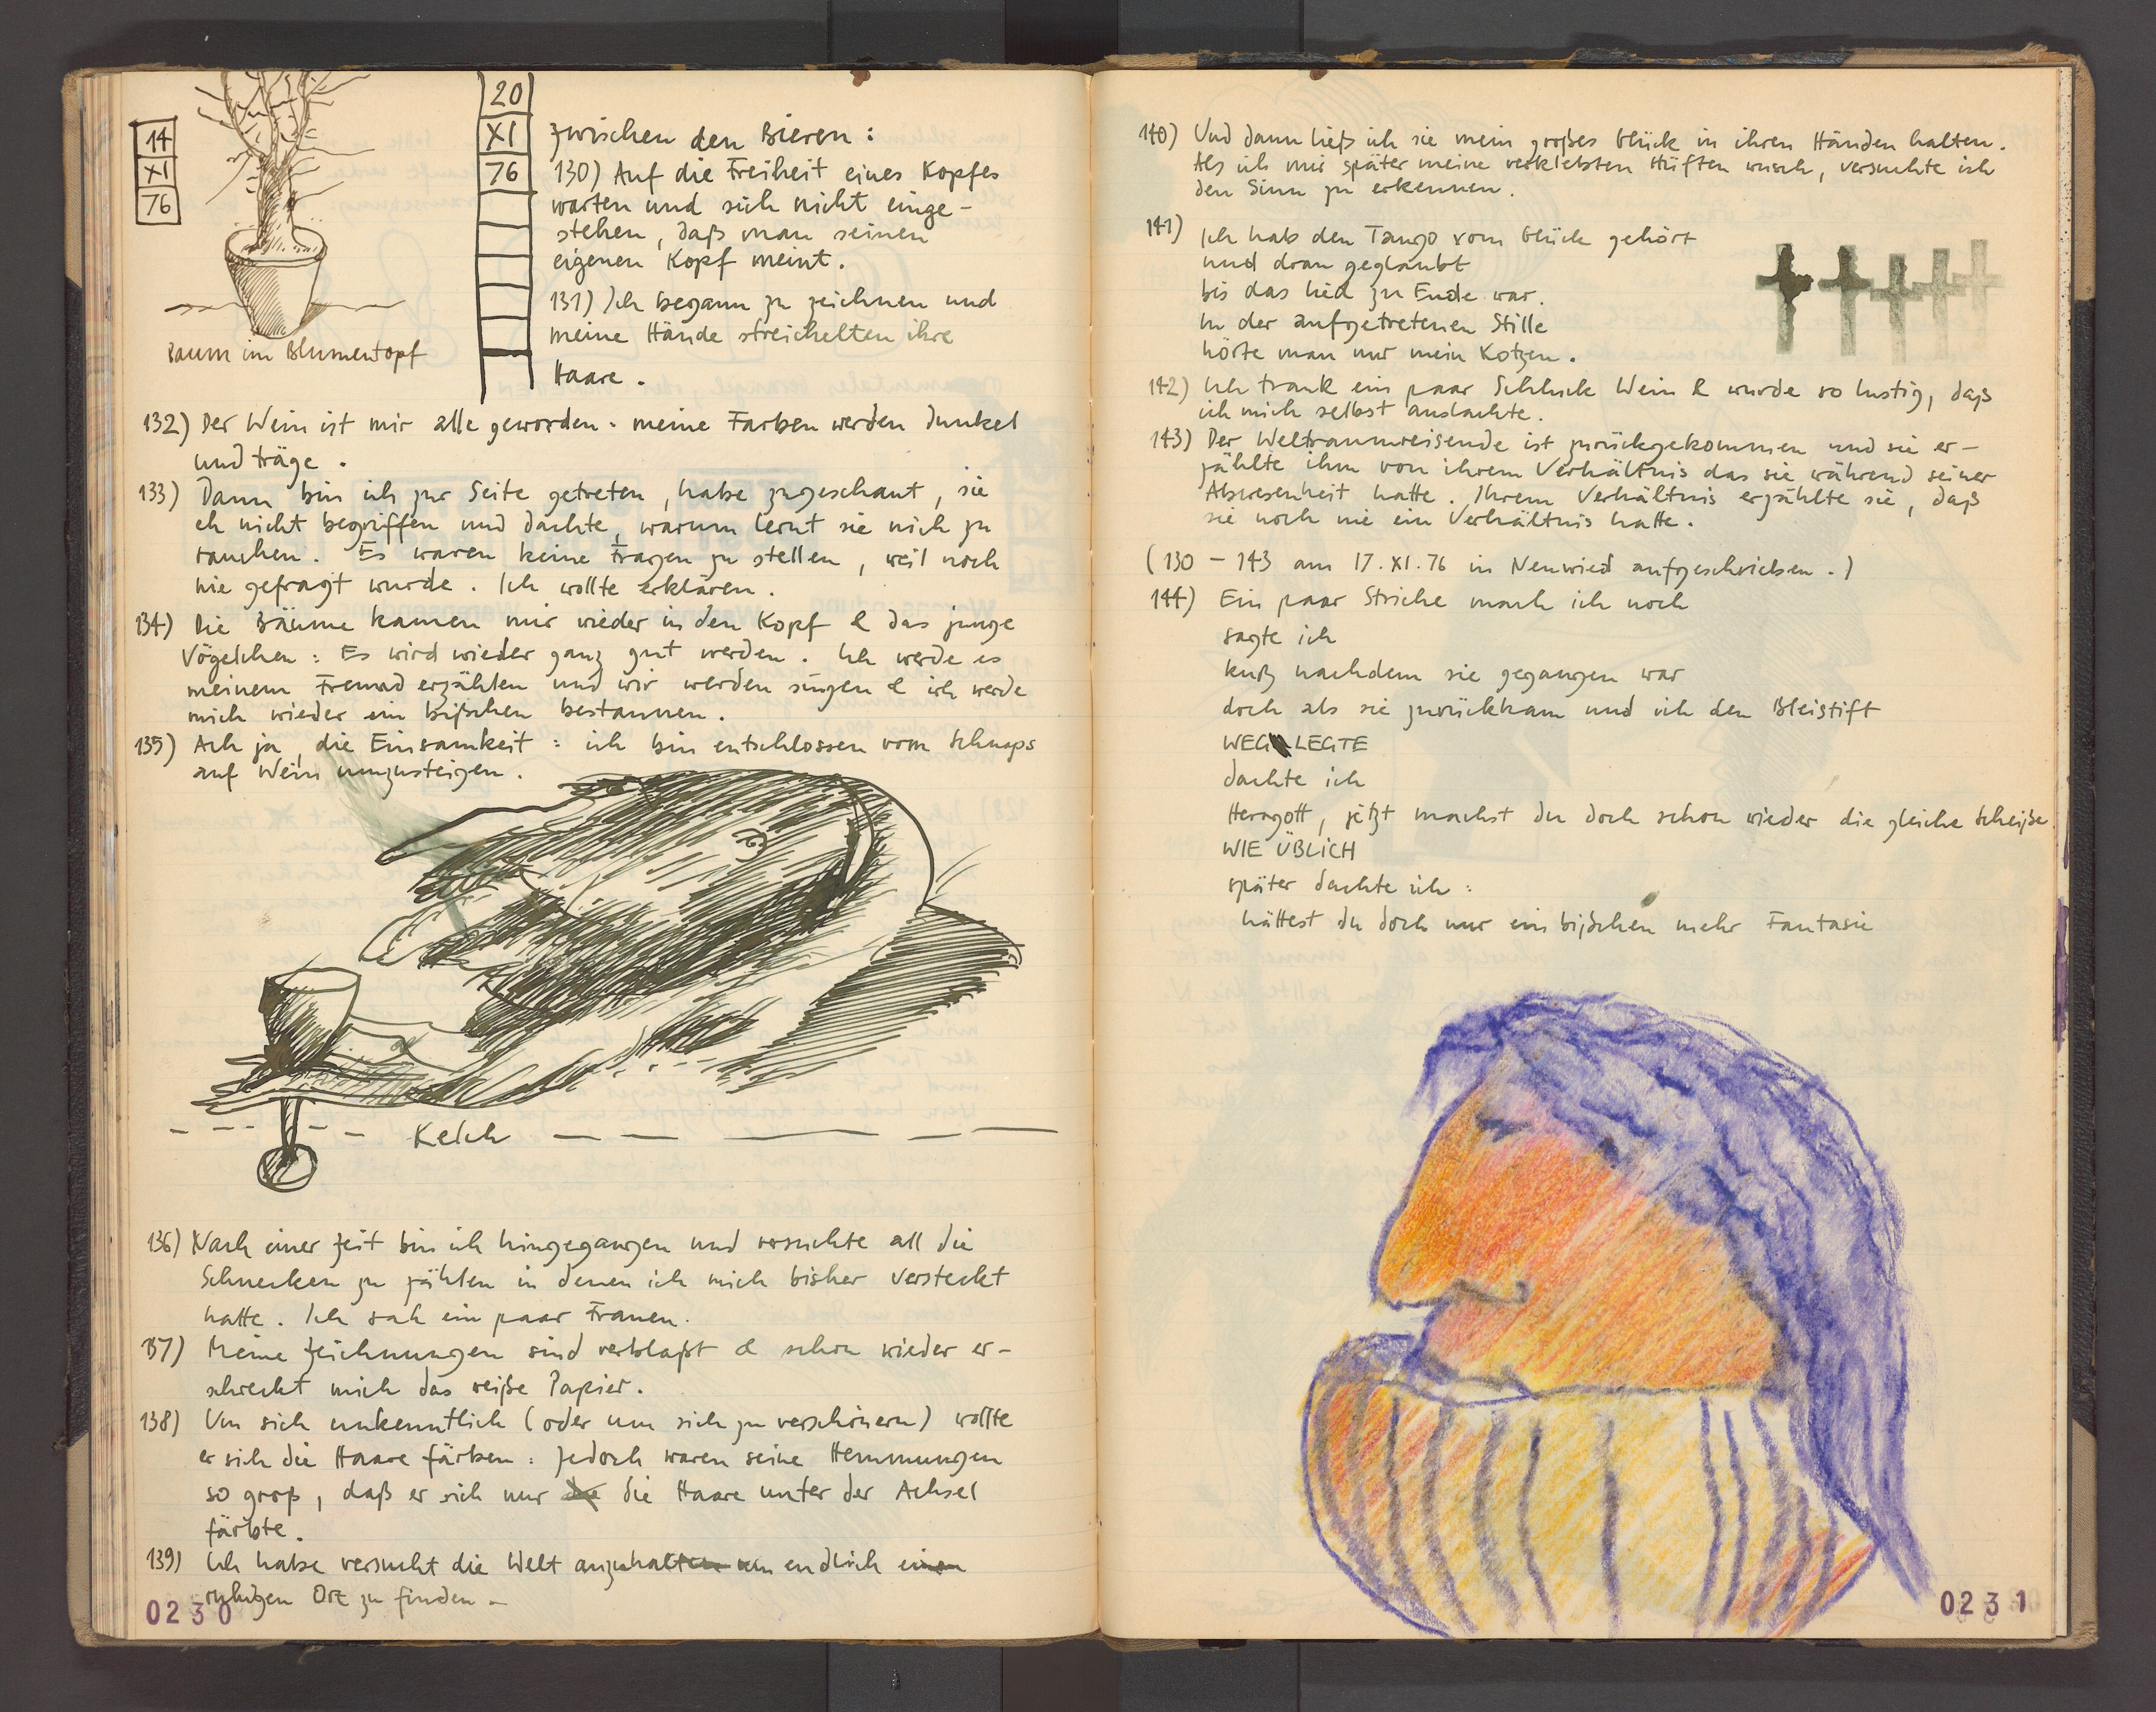 14
XI
76
Baum im Blumentopf
20
XI
76
zwischen den Bieren:
130) Auf die Freiheit eines Kopfes
warten und sich nicht einge-
stehen, daß man seinen
eigenen Kopf meint.
131) Ich begann zu zeichnen und
meine Hände streichelten ihre
Haare.
132) Der Wein ist mir alle geworden: meine Farben werden dunkel
und träge.
133) Dann bin ich zur Seite getreten, habe zugeschaut, sie
eh nicht begriffen und dachte, warum lernt sie nich zu
rauchen. Es waren keine Fragen zu stellen, weil noch
nie gefragt wurde. Ich wollte erklären.
134) Die Bäume kamen mir wieder in den Kopf & das junge
Vögelchen: Es wird wieder ganz gut werden. Ich werde es
meinem Freund erzählen und wir werden singen & ich werde
mich wieder ein bißchen bestaunen.
135) Ach ja, die Einsamkeit: ich bin entschlossen vom Schnaps
auf Wein umzusteigen.
Kelch
136) Nach einer Zeit bin ich hingegangen und versuchte all die
Schnecken zu zählen in denen ich mich bisher versteckt
hatte. Ich sah ein paar Frauen.
137) Meine Zeichnungen sind verblaßt & schon wieder er-
schreckt mich das weiße Papier.
138) Um sich unkenntlich (oder um sich zu verschönern) wollte
er sich die Haare färben: Jedoch waren seine Hemmungen
so groß, daß er sich nur die die Haare unter der Achsel
färbte.
139) Ich habe versucht die Welt anzuhalten um endlich einen
ruhigen Ort zu finden.-
0230
140) Und dann ließ ich sie mein großes Glück in ihren Händen halten.
Als ich mir später meine verklebten Hüften wusch, versuchte ich
den Sinn zu erkennen.
141) Ich hab den Tango vom Glück gehört
und dran geglaubt
bis das Lied zu Ende war.
In der aufgetretenen Stille
hörte man nur mein Kotzen.
142) Ich trank ein paar Schluck Wein & wurde so lustig, daß
ich mich selbst auslachte.
143) Der Weltraumreisende ist zurückgekommen und sie er-
zählte ihm von ihrem Verhältnis das sie während seiner
Abwesenheit hatte. Ihrem Verhältnis erzählte sie, daß
sie noch nie ein Verhältnis hatte.
(130 - 143 am 17. XI. 76 in Neuwied aufgeschrieben.)
144) Ein paar Striche mach ich noch
sagte ich
kurz nachdem sie gegangen war
doch als sie zurückkam und ich den Bleistift
WEG LEGTE
dachte ich
Herrgott, jetzt machst du doch schon wieder die gleiche Scheiße
WIE ÜBLICH
später dachte ich:
hättest du doch nur ein bißchen mehr Fantasie
0231